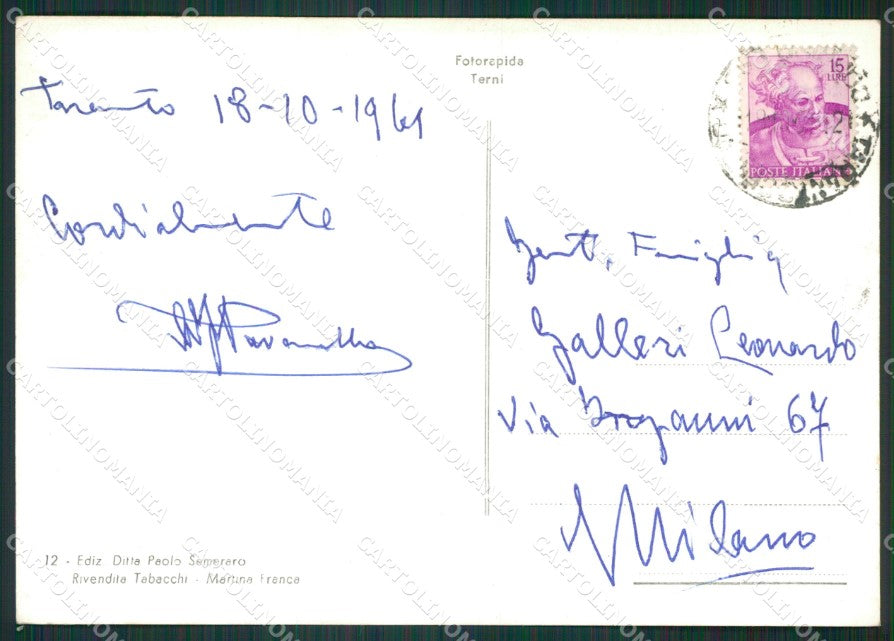 Fotorapida
Terni
15
LIRE
POSTE ITALIANE
Taranto 18-10-1961
Cordialmente
Gent. Famiglia
Galleri Leonardo
Via 67
Milano
12 - Ediz. Ditta Paolo Semeraro
Rivendita Tabacchi - Martina Franca
CARTOLINOMANIA